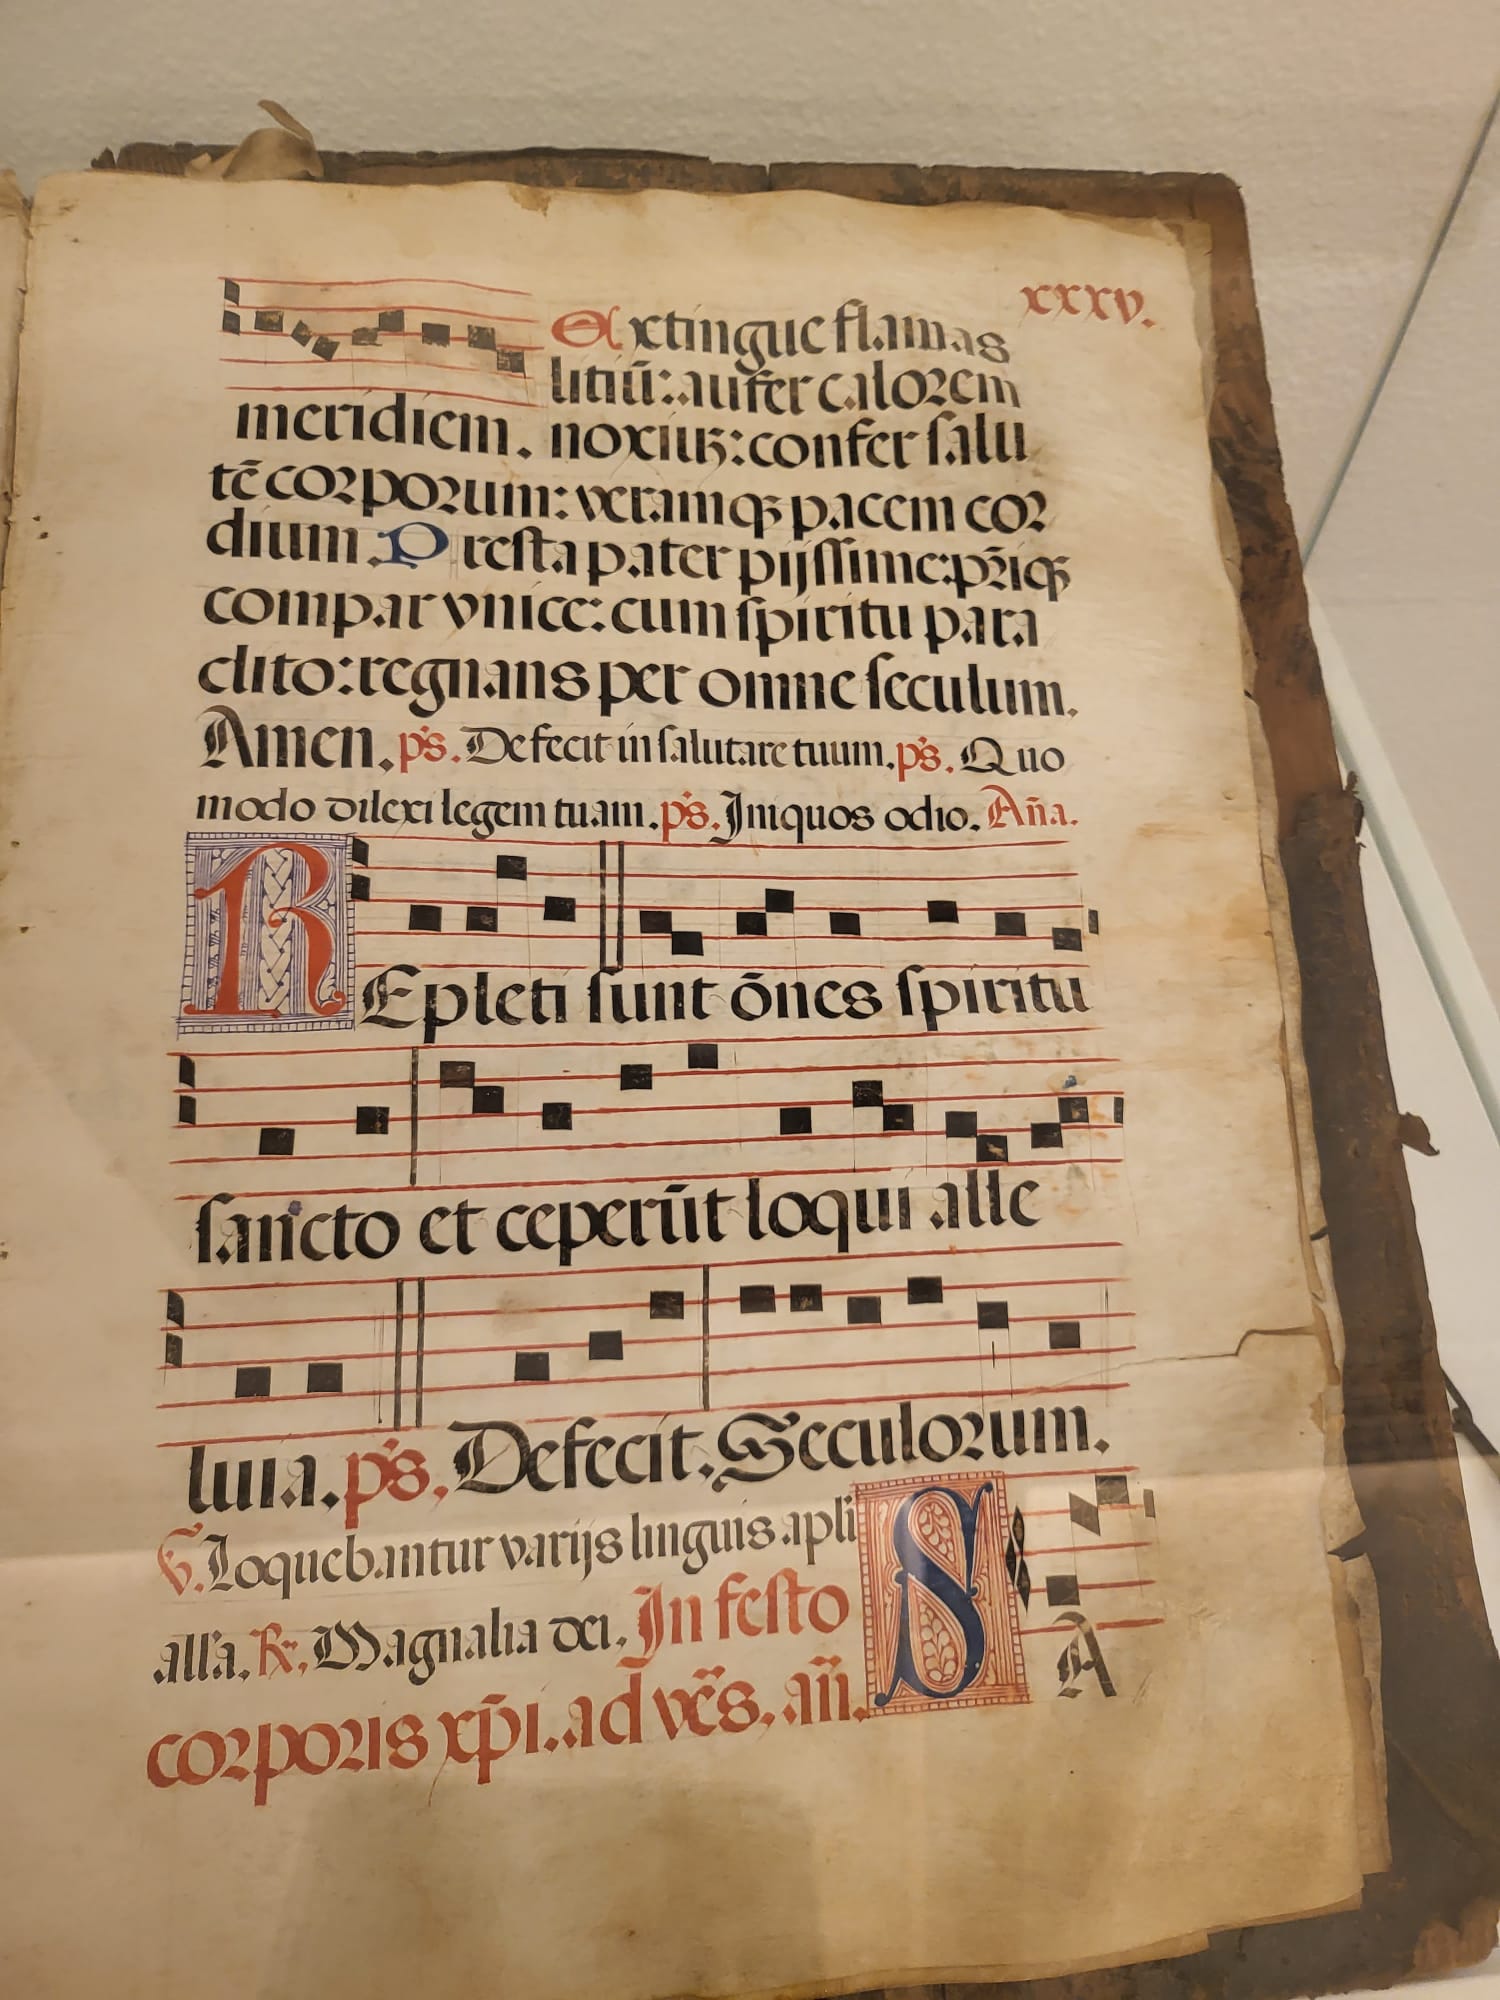 xxxv.
Extingue flamas
litiū: aufer calorem
meridiem. noxiuꝫ: confer ſalu
tē corporum: veramqꝫ pacem cor
dium. Preſta pater pijſſime: pr̄iqꝫ
compar vnice: cum ſpiritu para
clito: regnans per omne ſeculum.
Amen. ps. Defecit in ſalutare tuum. ps. Quo
modo dilexi legem tuam. ps. Iniquos odio. Añа.
REpleti ſunt ōnes ſpiritu
ſancto et ceperūt loqui alle
luia. ps. Defecit. Seculorum.
℣. Loquebantur varijs linguis apli
alľa. ℟. Magnalia dei. In feſto
corporis xp̄i. ad ve͂s. an̄. SA